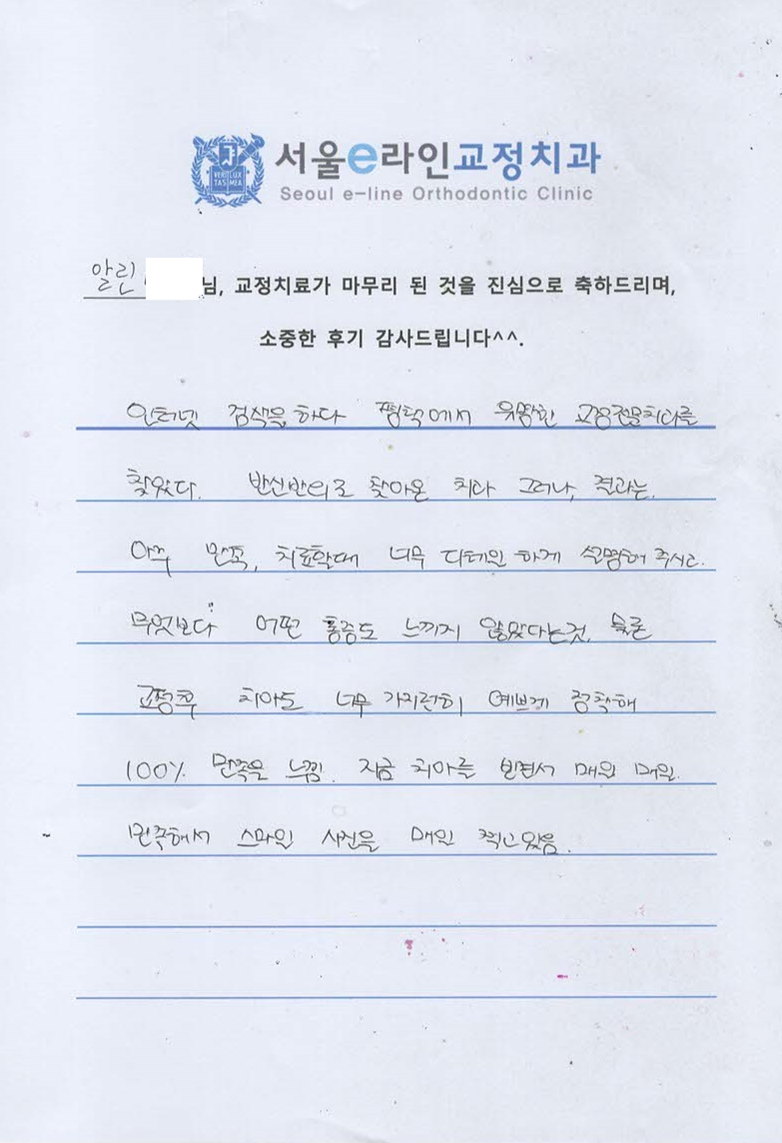 서울e라인교정치과
Seoul e-line Orthodontic Clinic
VERI LUX TAS MEA
알린 님, 교정치료가 마무리 된 것을 진심으로 축하드리며,
소중한 후기 감사드립니다^^.
인터넷 검색을 하다 평택에서 유명한 교정전문치과를
찾았다. 반신반의로 찾아온 치과 그러나, 결과는.
아주 만족, 치료할때 너무 디테일 하게 설명해 주시고.
무엇보다 어떤 통증도 느끼지 않았다는것. 물론
교정후 치아도 너무 가지런히 예쁘게 정착해
100% 만족을 느낌. 지금 치아를 보면서 매일 매일.
만족해서 스마일 사진을 매일 찍고 있음.